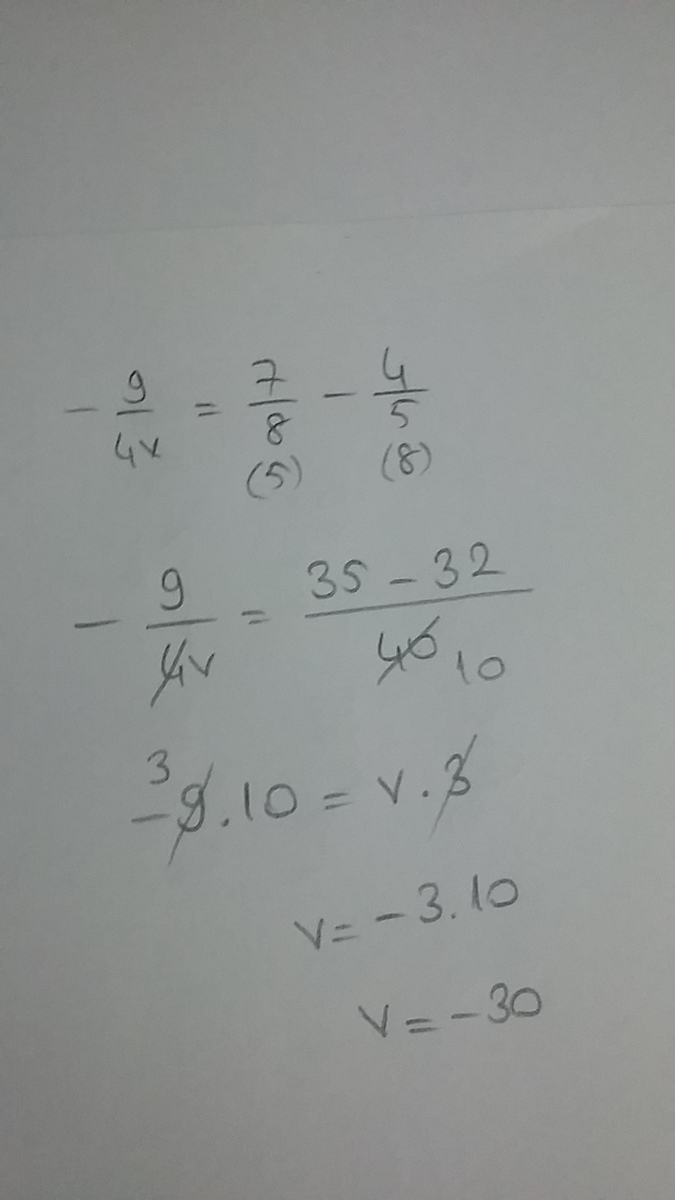 - 9/4v = 7/8 - 4/5
(5) (8)
- 9/4v = 35 - 32/40 10
3
- 9 . 10 = v . 3
v = - 3 . 10
v = - 30